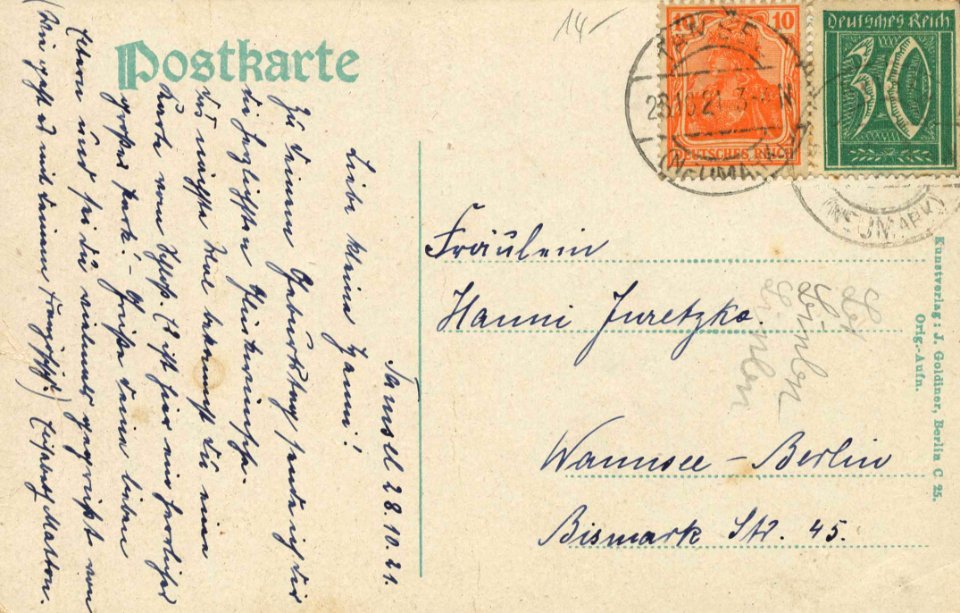 14-
Postkarte
10 10
DEUTSCHES REICH
Deutsches Reich
30
TAMSEL
28.10.21. 3-4 N
(NEUMARK)
(NEUMARK)
Tamsel 28.10.21.
Liebe kleine Hanni!
Zu Deinem Geburtstag sende ich Dir
die herzlichsten Glückwünsche.
Das nächste Mal bekommst Du eine
Karte vom Schloß. Es ist hier ein herrlicher
großer Park. - Grüße Deine lieben
Eltern und sei Du vielmals gegrüßt von
(Wie geht es mit Deinem Französisch?)
Fräulein
Hanni Juretzka.
Wannsee - Berlin
Bismark Str. 45.
Kunstverlag: J. Goldiner, Berlin C 25.
Orig.-Aufn.